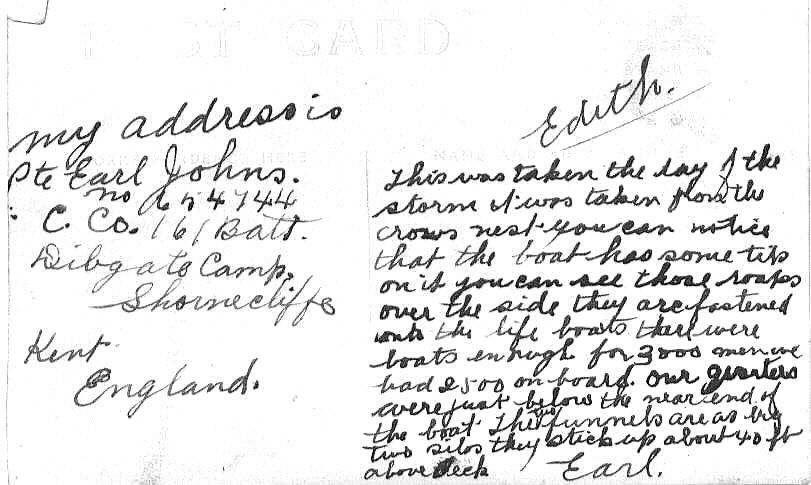 POST CARD
my address is
Pte Earl Johns.
no 654744
C. Co. 161 Batt.
Dibgate Camp,
Shornecliffe
Kent
England.
Edith.
This was taken the day of the
storm it was taken from the
crows nest you can notice
that the boat has some tip
on it you can see those roaps
over the side they are fastened
onto the life boats there were
boats enough for 3000 men we
had 2500 on board. Our quarters
were just below the near end of
the boat. The two funnels are as big
two silos they stick up about 40 ft
above deck
Earl.